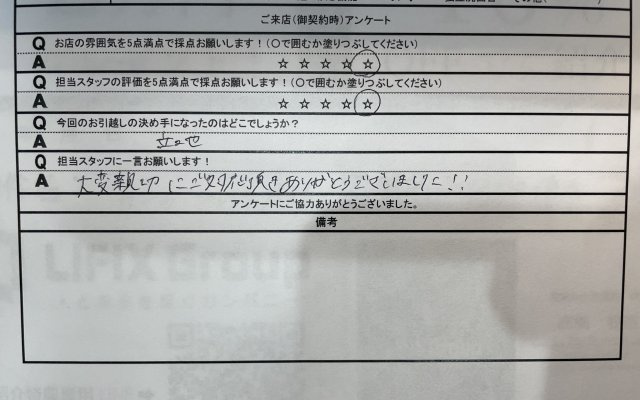 ご来店(御契約時)アンケート
Q お店の雰囲気を5点満点で採点お願いします!(〇で囲むか塗りつぶしてください)
A ☆ ☆ ☆ ☆ ☆
Q 担当スタッフの評価を5点満点で採点お願いします!(〇で囲むか塗りつぶしてください)
A ☆ ☆ ☆ ☆ ☆
Q 今回のお引越しの決め手になったのはどこでしょうか?
A 立地
Q 担当スタッフに一言お願いします!
A 大変親切にご対応頂きありがとうございました!!
アンケートにご協力ありがとうございました。
備考
LIFIX Group